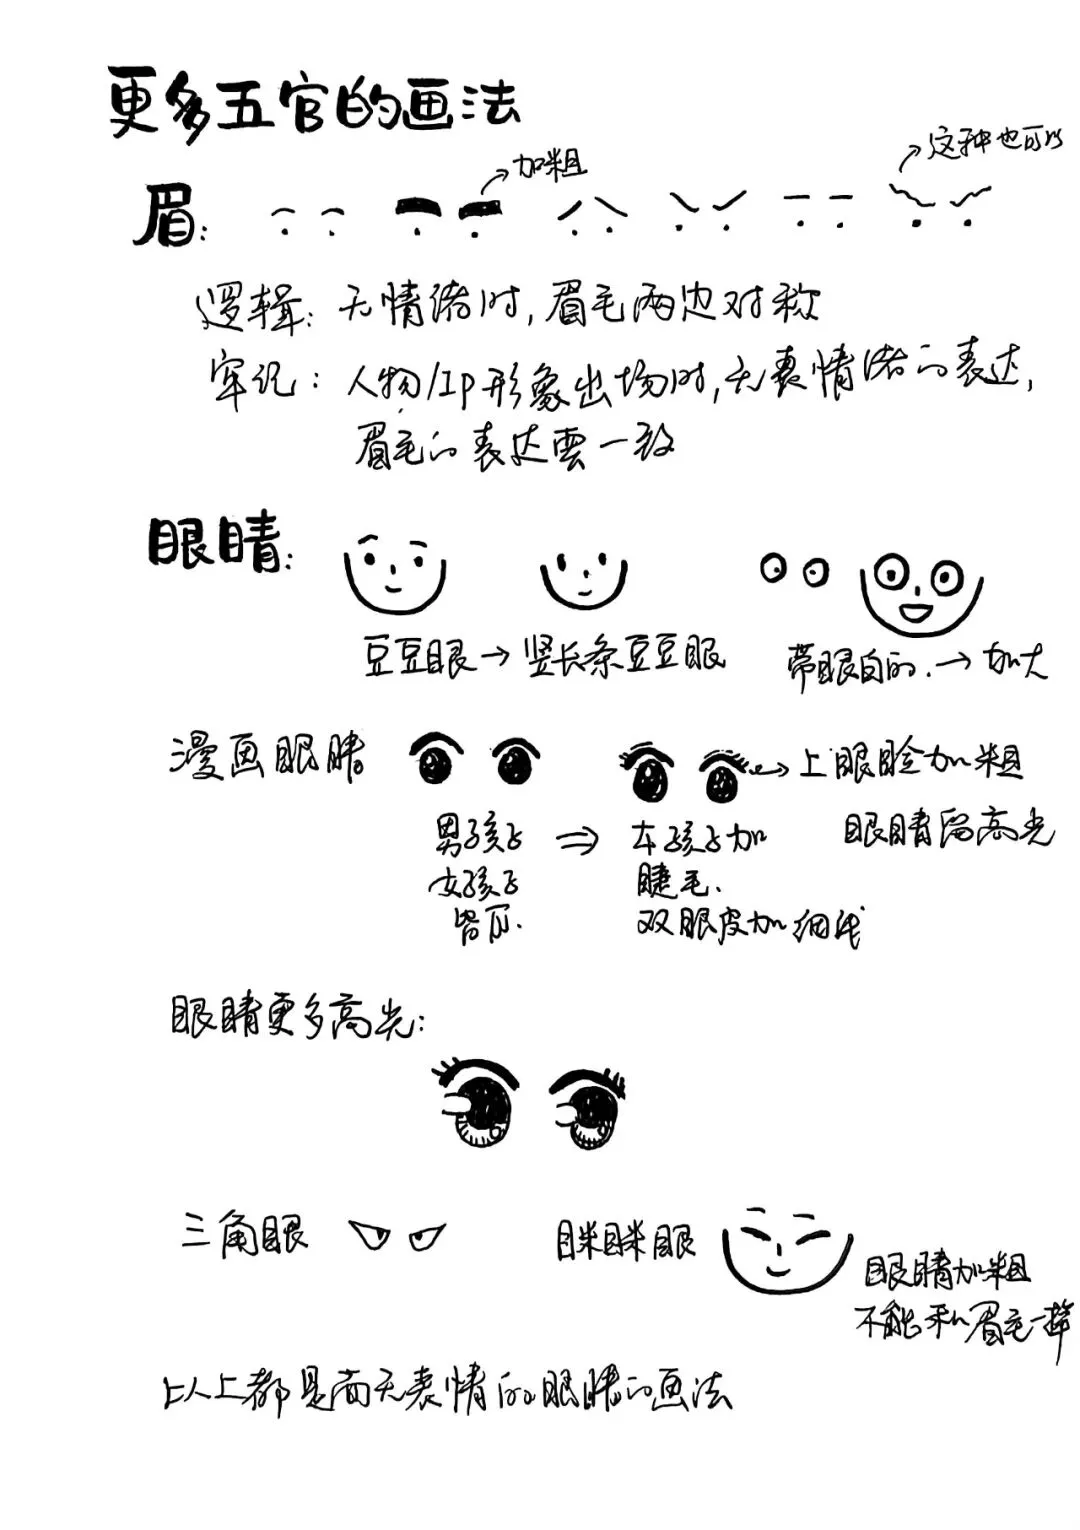 更多五官的画法
这种也可以
加粗
眉:
逻辑: 无情绪时, 眉毛两边对称
牢记: 人物/IP形象出场时, 无表情绪的表达,
眉毛的表达要一致
眼睛:
豆豆眼→竖长条豆豆眼
带眼白的.→加大
漫画眼睛
上眼睑加粗
眼睛留高光
男孩子
女孩子
皆可.
⇒
女孩子加
睫毛.
双眼皮加细线
眼睛更多高光:
三角眼
眯眯眼
眼睛加粗
不能和眉毛一样
以上都是面无表情的眼睛的画法